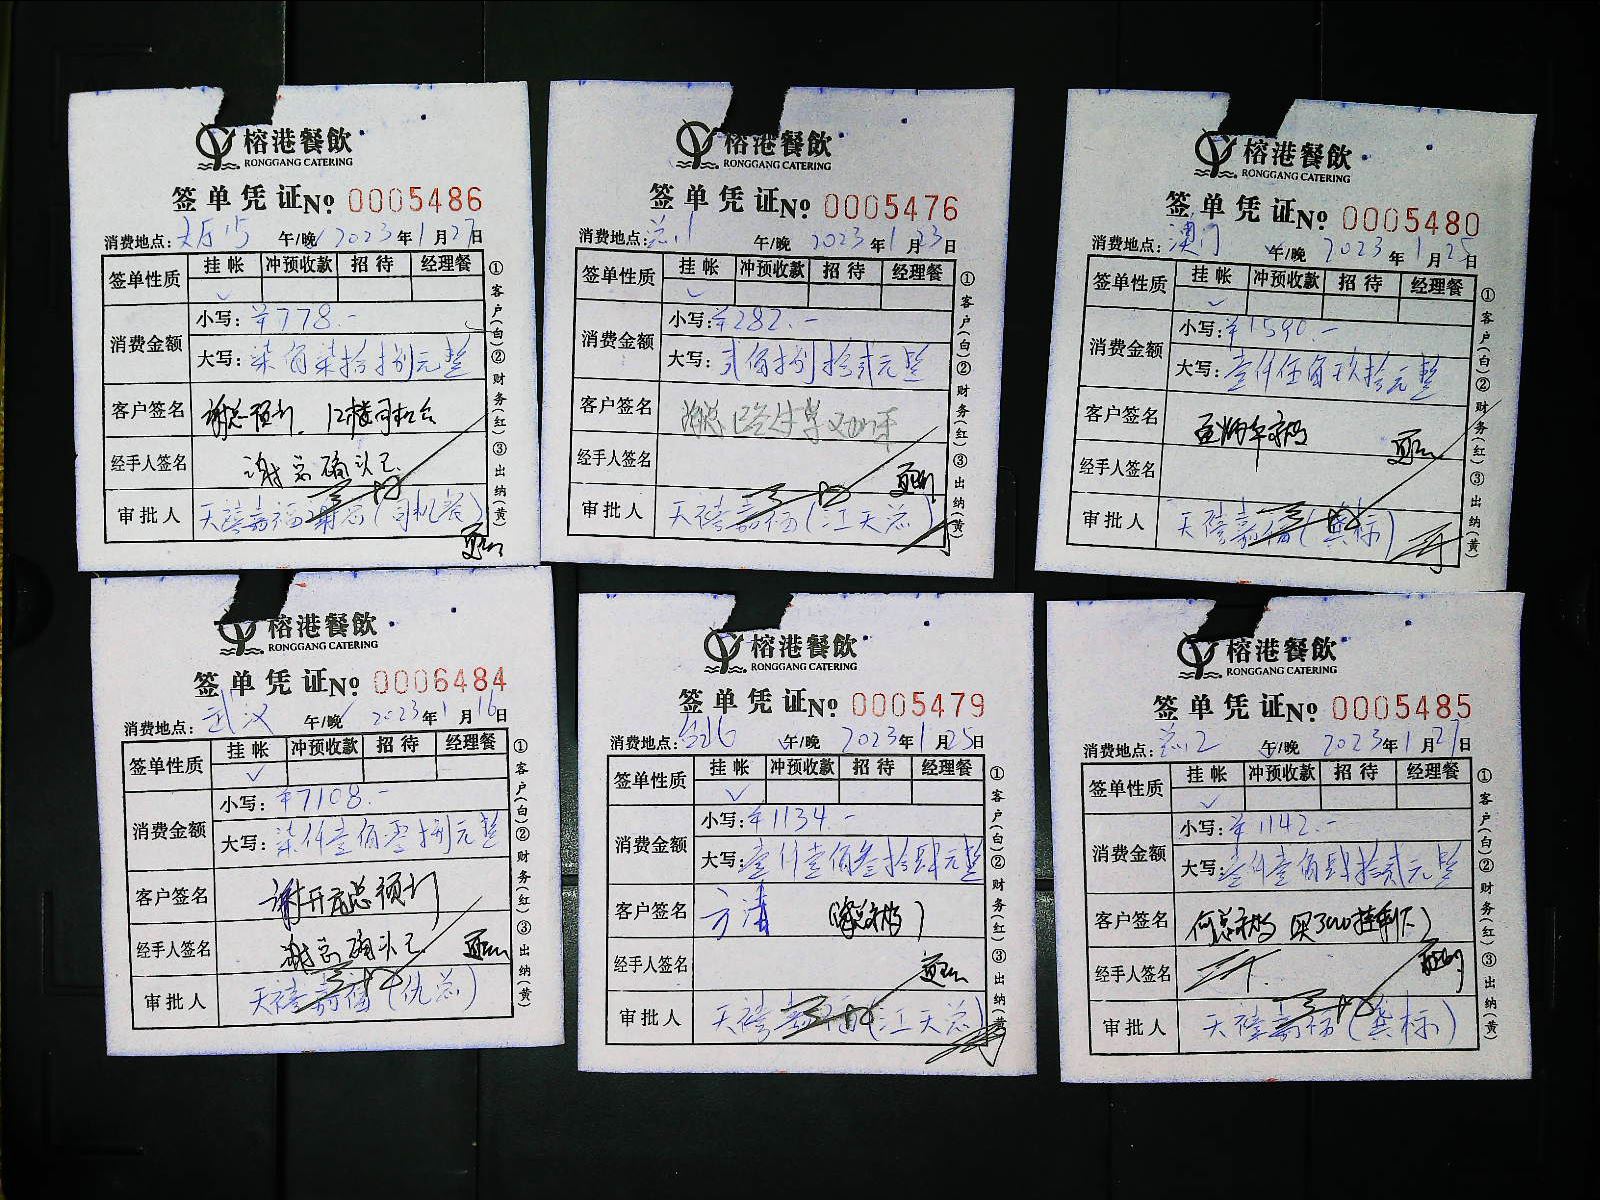 榕港餐飲
RONGGANG CATERING
签单凭证 No 0005486
消费地点: 大厅15 午/晚 2023年1月27日
签单性质 挂帐 冲预收款 招待 经理餐
✓
消费金额 小写: ¥778.-
大写: 柒佰柒拾捌元整
客户签名 谢总预订
经手人签名 谢总确认已
审批人 天禧嘉福谢总(司机餐)
①客户(白)②财务(红)③出纳(黄)
榕港餐飲
RONGGANG CATERING
签单凭证 No 0005476
消费地点: 总1 午/晚 2023年1月23日
签单性质 挂帐 冲预收款 招待 经理餐
✓
消费金额 小写: ¥282.-
大写: 贰佰捌拾贰元整
客户签名
经手人签名
审批人 天禧嘉福(江天总)
①客户(白)②财务(红)③出纳(黄)
榕港餐飲
RONGGANG CATERING
签单凭证 No 0005480
消费地点: 澳门 午/晚 2023年1月25日
签单性质 挂帐 冲预收款 招待 经理餐
✓
消费金额 小写: ¥1590.-
大写: 壹仟伍佰玖拾元整
客户签名
经手人签名
审批人 天禧嘉福(龚标)
①客户(白)②财务(红)③出纳(黄)
榕港餐飲
RONGGANG CATERING
签单凭证 No 0006484
消费地点: 武汉 午/晚 2023年1月16日
签单性质 挂帐 冲预收款 招待 经理餐
✓
消费金额 小写: ¥7108.-
大写: 柒仟壹佰零捌元整
客户签名 谢开总预订
经手人签名 谢总确认已
审批人 天禧嘉福(仇总)
①客户(白)②财务(红)③出纳(黄)
榕港餐飲
RONGGANG CATERING
签单凭证 No 0005479
消费地点: 台北 午/晚 2023年1月25日
签单性质 挂帐 冲预收款 招待 经理餐
✓
消费金额 小写: ¥1134.-
大写: 壹仟壹佰叁拾肆元整
客户签名 方涛
经手人签名
审批人 天禧嘉福(江天总)
①客户(白)②财务(红)③出纳(黄)
榕港餐飲
RONGGANG CATERING
签单凭证 No 0005485
消费地点: 总2 午/晚 2023年1月27日
签单性质 挂帐 冲预收款 招待 经理餐
✓
消费金额 小写: ¥1142.-
大写: 壹仟壹佰肆拾贰元整
客户签名 何总
经手人签名
审批人 天禧嘉福(龚标)
①客户(白)②财务(红)③出纳(黄)